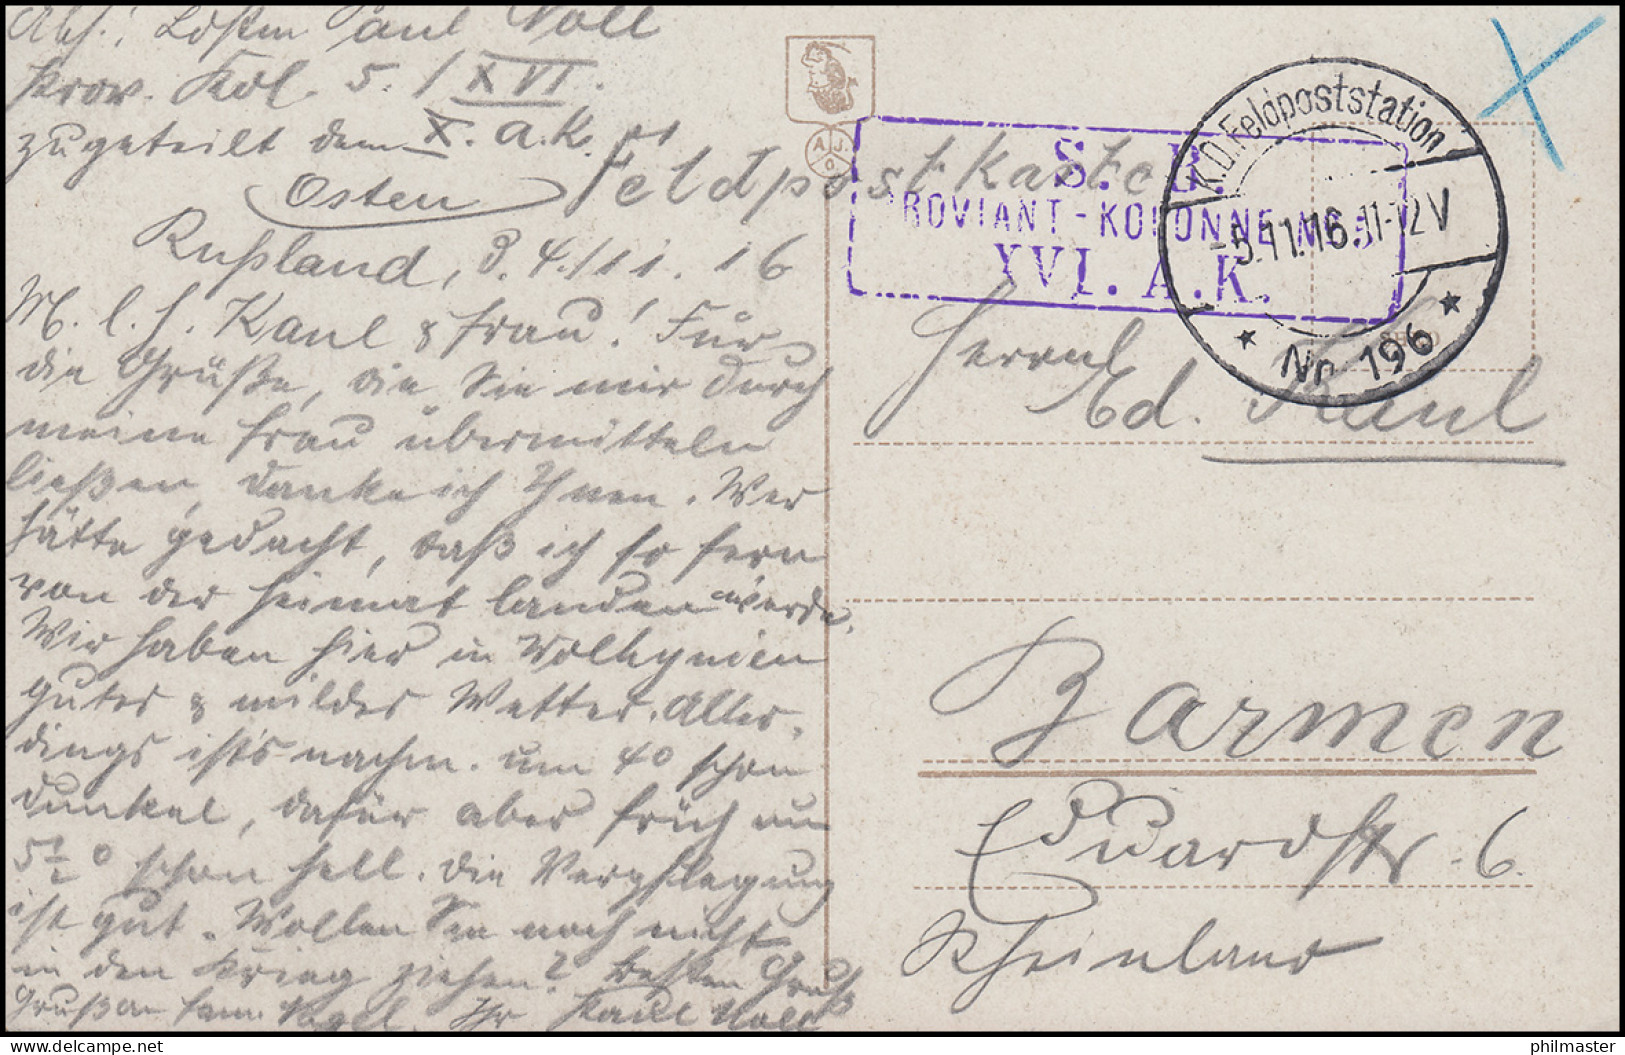 Abs.: Ldstm Paul Noll
Prov. Kol. 5./XVI.
zugeteilt dem X. A.K.
Osten
Rußland, d. 4./11.16
M. l. H. Kaul & Frau! Für
die Grüße, die Sie mir durch
meine Frau übermitteln
ließen, danke ich Ihnen. Wer
hätte gedacht, daß ich so fern
von der Heimat landen werde.
Wir haben hier in Wolhynien
gutes & mildes Wetter. Aller-
dings ist's nachm. um 4⁰ schon
dunkel, dafür aber früh um
5½⁰ schon hell. Die Verpflegung
ist gut. Wollen Sie noch nicht
in den Krieg ziehen? Besten Gruß
Gruß an Fam. Vogel. Ihr Paul Noll
Feldpostkarte
A. J. O
S. B.
PROVIANT-KOLONNE No 5
XVI. A.K.
K.D. Feldpoststation
-5.11.16.11-12V
* Nr. 196 *
Herrn
Ed. Kaul
Barmen
Eduardstr. 6.
Rheinland
delcampe.net
philmaster